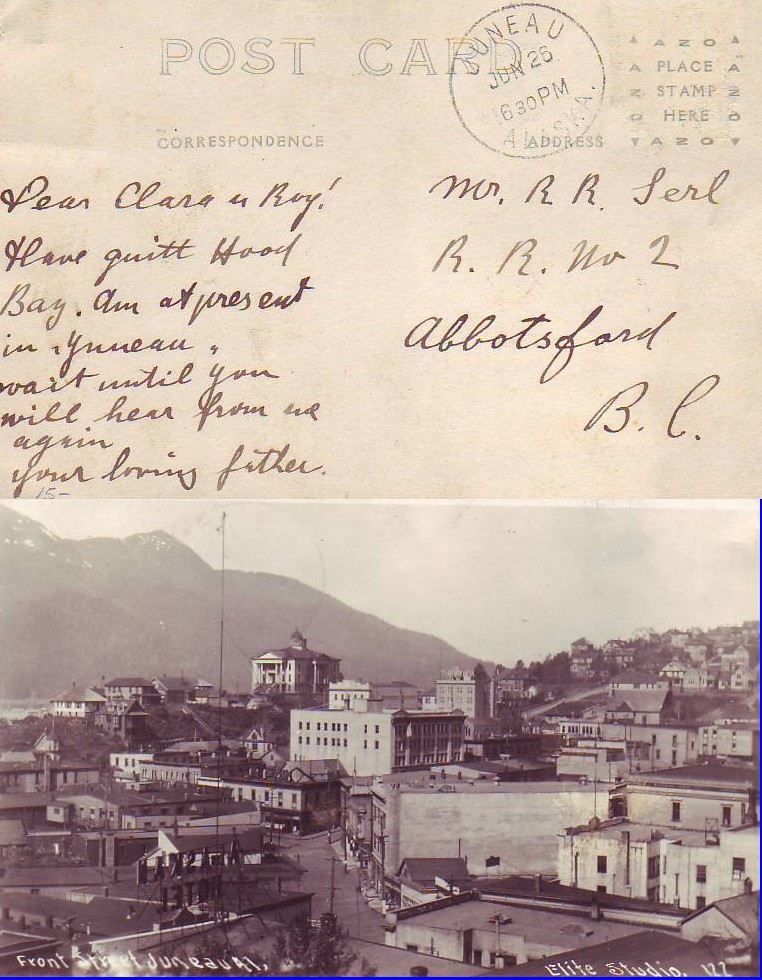 POST CARD
JUNEAU
JUN 26
630PM
ALASKA.
AZO
PLACE
STAMP
HERE
AZO
CORRESPONDENCE
ADDRESS
Dear Clara u Roy!
Have quitt Hood
Bay. Am at present
in Juneau,
wait until you
will hear from me
again
your loving father.
15-
Mr. R R. Serl
R. R. No 2
Abbotsford
B. C.
Front Street Juneau Al,
Elite Studio. 177